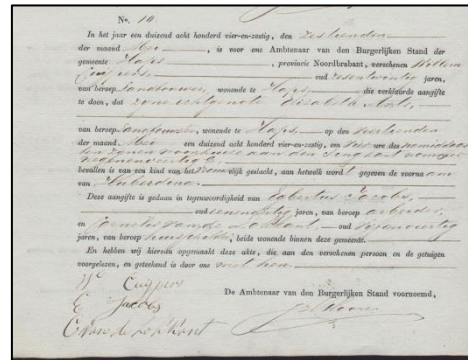 No. 10.
In het jaar een duizend acht honderd vier-en-zestig, den zestienden
der maand Mei, is voor ons Ambtenaar van den Burgerlijken Stand der
gemeente Haps, provincie Noordbrabant, verschenen Willem
Cuijpers, oud zesentwintig jaren,
van beroep landbouwer, wonende te Haps, die verklaarde aangifte
te doen, dat zijne echtgenote Elizabeth
van beroep landbouwster, wonende te Haps op den veertienden
der maand Mei een duizend acht honderd vier-en-zestig, ten vier ure des namiddags
ten zijnen woonhuize aan den
negenenveertig
bevallen is van een kind van het vrouwelijk geslacht, aan hetwelk wordt gegeven de voornaam
van Huberdina
Deze aangifte is gedaan in tegenwoordigheid van Egbertus Jacobs,
oud jaren, van beroep arbeider,
en Cornelis van de Lokkant, oud vijfenveertig
jaren, van beroep, beide wonende binnen deze gemeente.
En hebben wij hiervan opgemaakt deze akte, die, aan den verschenen persoon en de getuigen
voorgelezen, en geteekend is door ons met hen.
W Cuijpers
De Ambtenaar van den Burgerlijken Stand voornoemd,
E Jacobs
C van de Lokkant